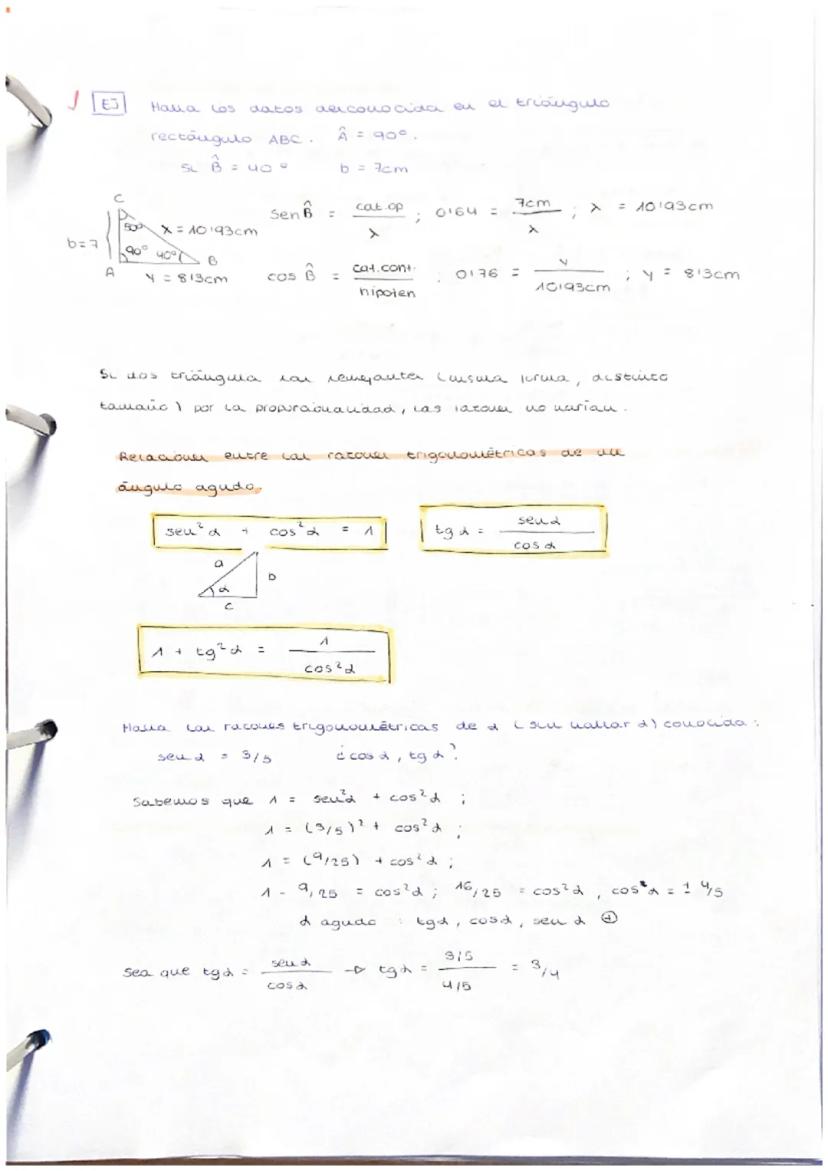 EJ Halla los datos desconocidos en el triángulo
rectángulo ABC. Â = 90º.
Si B̂ = 40º b = 7cm
C
50º x = 10'93cm
b=7
90º 40º B
A y = 8'3cm
Sen B̂ = cat.op / x ; 0'64 = 7cm / x ; x = 10'93cm
cos B̂ = cat.cont. / hipoten ; 0'76 = y / 10'93cm ; y = 8'3cm
Si dos triángulos son semejantes (misma forma, distinto
tamaño) por la proporcionalidad, las razones no varían.
Relaciones entre las razones trigonométricas de un
ángulo agudo.
sen²α + cos²α = 1
tg α = senα / cosα
a
b
α
c
1 + tg²α = 1 / cos²α
Halla las razones trigonométricas de α (sin hallar α) conocida:
senα = 3/5 ¿cosα, tgα?
Sabemos que 1 = sen²α + cos²α ;
1 = (3/5)² + cos²α ;
1 = (9/25) + cos²α ;
1 - 9/25 = cos²α ; 16/25 = cos²α , cosα = ± 4/5
α agudo : tgα, cosα, senα ⊕
Sea que tgα = senα / cosα → tgα = 3/5 / 4/5 = 3/4